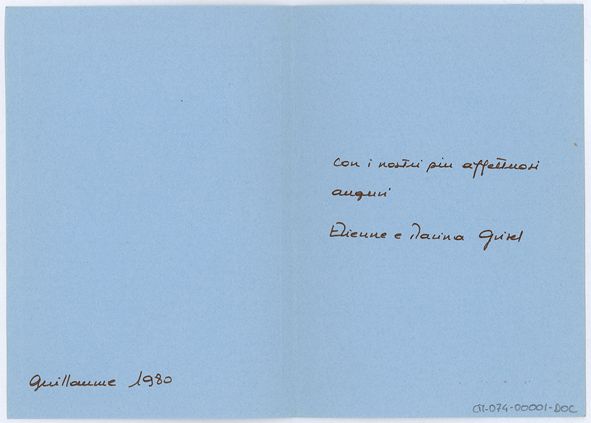 con i nostri più affettuosi
auguri
Etienne e Marina Grisel
Guillaume 1980
CM-074-00001-DOC